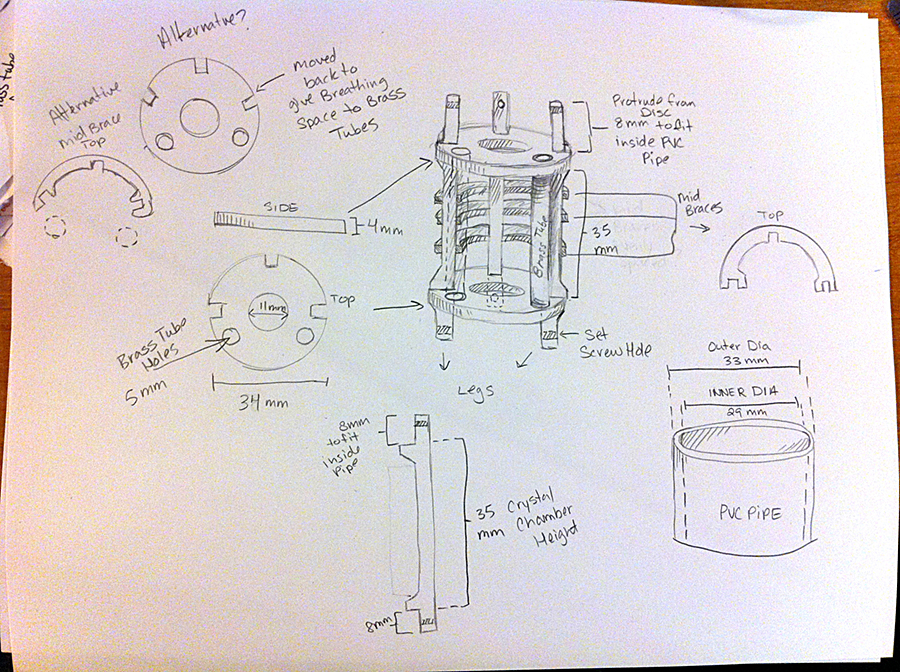 Alternative?
moved
back to
give Breathing
Space to Brass
Tubes
Alternative
mid Brace
Top
SIDE
4mm
Protrude from
Disc
8mm to fit
inside PVC
Pipe
mid
Braces
35
mm
Brass Tube
TOP
11mm
TOP
Brass Tube
Holes
5mm
34mm
Set
Screw Hole
Legs
Outer Dia
33mm
INNER DIA
29mm
PVC PIPE
8mm
to fit
inside
Pipe
35 Crystal
mm Chamber
Height
8mm